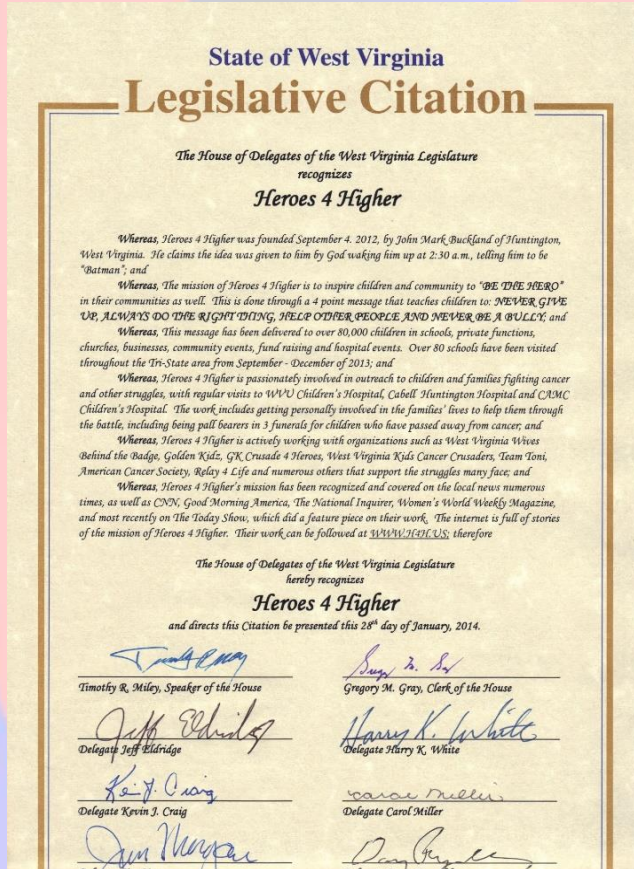 State of West Virginia
Legislative Citation
The House of Delegates of the West Virginia Legislature
recognizes
Heroes 4 Higher
Whereas, Heroes 4 Higher was founded September 4, 2012, by John Mark Buckland of Huntington,
West Virginia. He claims the idea was given to him by God waking him up at 2:30 a.m., telling him to be
"Batman"; and
Whereas, The mission of Heroes 4 Higher is to inspire children and community to "BE THE HERO"
in their communities as well. This is done through a 4 point message that teaches children to: NEVER GIVE
UP, ALWAYS DO THE RIGHT THING, HELP OTHER PEOPLE AND NEVER BE A BULLY; and
Whereas, This message has been delivered to over 80,000 children in schools, private functions,
churches, businesses, community events, fund raising and hospital events. Over 80 schools have been visited
throughout the Tri-State area from September - December of 2013; and
Whereas, Heroes 4 Higher is passionately involved in outreach to children and families fighting cancer
and other struggles, with regular visits to WVU Children's Hospital, Cabell Huntington Hospital and CAMC
Children's Hospital. The work includes getting personally involved in the families' lives to help them through
the battle, including being pall bearers in 3 funerals for children who have passed away from cancer; and
Whereas, Heroes 4 Higher is actively working with organizations such as West Virginia Wives
Behind the Badge, Golden Kidz, GK Crusade 4 Heroes, West Virginia Kids Cancer Crusaders, Team Toni,
American Cancer Society, Relay 4 Life and numerous others that support the struggles many face; and
Whereas, Heroes 4 Higher's mission has been recognized and covered on the local news numerous
times, as well as CNN, Good Morning America, The National Inquirer, Women's World Weekly Magazine,
and most recently on The Today Show, which did a feature piece on their work. The internet is full of stories
of the mission of Heroes 4 Higher. Their work can be followed at WWW.H4H.US; therefore
The House of Delegates of the West Virginia Legislature
hereby recognizes
Heroes 4 Higher
and directs this Citation be presented this 28th day of January, 2014.
Timothy R. Miley, Speaker of the House Gregory M. Gray, Clerk of the House
Jeff Eldridge Harry K. White
Delegate Jeff Eldridge Delegate Harry K. White
Kevin J. Craig Carol Miller
Delegate Kevin J. Craig Delegate Carol Miller
Jim Morgan